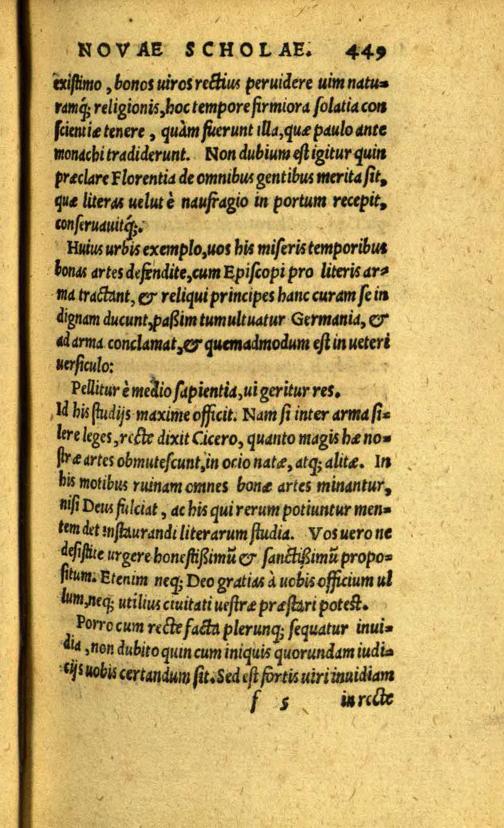 NOVAE SCHOLAE. 449
existimo, bonos uiros rectius peruidere uim natu-
ramq; religionis, hoc tempore firmiora solatia con
scientiæ tenere, quàm fuerunt illa, quæ paulo ante
monachi tradiderunt. Non dubium est igitur quin
præclare Florentia de omnibus gentibus merita sit,
quæ literas uelut è naufragio in portum recepit,
conseruauitq;.
Huius urbis exemplo, uos his miseris temporibus
bonas artes defendite, cum Episcopi pro literis ar-
ma tractant, & reliqui principes hanc curam se in
dignam ducunt, paßim tumultuatur Germania, &
ad arma conclamat, & quemadmodum est in ueteri
uersiculo:
Pellitur è medio sapientia, ui geritur res.
Id his studijs maxime officit. Nam si inter arma si-
lere leges, recte dixit Cicero, quanto magis hæ no-
stræ artes obmutescunt, in ocio natæ, atq; alitæ. In
his motibus ruinam omnes bonæ artes minantur,
nisi Deus fulciat, ac his qui rerum potiuntur men-
tem det instaurandi literarum studia. Vos uero ne
desistite urgere honestißimū & sanctißimū propo-
situm. Etenim neq; Deo gratias à uobis officium ul
lum, neq; utilius ciuitati uestræ præstari potest.
Porro cum recte facta plerunq; sequatur inui-
dia, non dubito quin cum iniquis quorundam iudi-
cijs uobis certandum sit. Sed est fortis uiri inuidiam
f 5 in recte